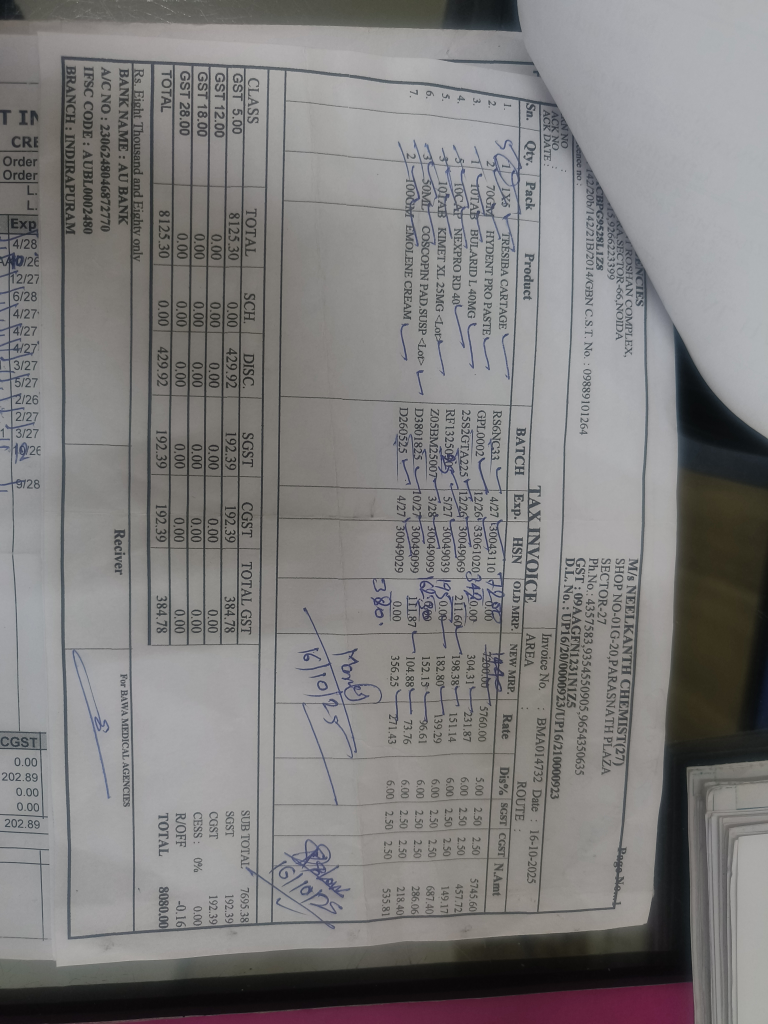 AGENCIES
ROSHAN COMPLEX,
SECTOR-66,NOIDA
9266223399
142/20b/142/21B/2014/GBN C.S.T. No. : 09889101264
ACK NO. :
ACK DATE :
Page No...1
M/s NEELKANTH CHEMIST(27)
SHOP NO-01G-20,PARASNATH PLAZA
SECTOR-27
Ph.No : 4357583,9354550905,9654350635
GST : 09AAGFN1231N1Z5
D.L. No. : UP16/20/0000923/UP16/210000923
TAX INVOICE
Invoice No. : BMA014732 Date : 16-10-2025
AREA : ROUTE :
Sn. Qty. Pack Product BATCH Exp. HSN OLD MRP. NEW MRP. Rate Dis% SGST CGST N.Amt
1. 1X5 TRESIBA CARTAGE RS6NC33 4/27 30043110 7200.00 5760.00 5.00 2.50 2.50 5745.60
2. 2 70GM HYDENT PRO PASTE GPL0002 12/26 33061020 340 0.00 304.31 231.87 6.00 2.50 2.50 457.72
3. 1 10TAB BULARID L 40MG 25S2GTA225 12/26 30049069 211.60 198.38 151.14 6.00 2.50 2.50 149.17
4. 5 10CAP NEXPRO RD 40 5/27 30049039 195 0.00 182.80 139.29 6.00 2.50 2.50 687.40
5. 3 10TAB KIMET XL 25MG <Lot> Z05BM25007 3/28 30049099 152.15 96.61 6.00 2.50 2.50 286.06
6. 3 50ML COSCOPIN PAD.SUSP <Lot> D3801825 10/27 30049099 111.87 104.88 73.76 6.00 2.50 2.50 218.40
7. 2 100GM EMOLENE CREAM D260525 4/27 30049029 0.00 356.25 271.43 6.00 2.50 2.50 535.81
380.
16/10/25
16/10/25
CLASS TOTAL SCH. DISC. SGST CGST TOTAL GST
GST 5.00 8125.30 0.00 429.92 192.39 192.39 384.78
GST 12.00 0.00 0.00 0.00 0.00 0.00 0.00
GST 18.00 0.00 0.00 0.00 0.00 0.00 0.00
GST 28.00 0.00 0.00 0.00 0.00 0.00 0.00
TOTAL 8125.30 0.00 429.92 192.39 192.39 384.78
SUB TOTAL 7695.38
SGST 192.39
CGST 192.39
CESS : 0% 0.00
R/OFF -0.16
TOTAL 8080.00
Rs. Eight Thousand and Eighty only
BANK NAME : AU BANK
A/C NO : 2306248046872770
IFSC CODE : AUBL0002480
BRANCH : INDIRAPURAM
Reciver
For BAWA MEDICAL AGENCIES
T IN
CRE
Order
Order
Exp
4/28
12/27
6/28
4/27
4/27
4/27
3/27
5/27
2/26
2/27
3/27
10/26
9/28
CGST
0.00
202.89
0.00
0.00
202.89